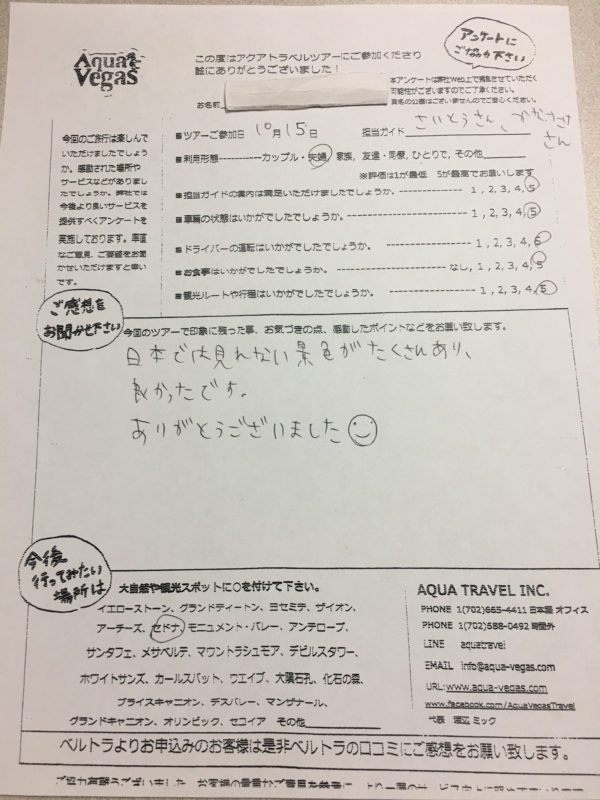 Aqua Vegas
この度はアクアトラベルツアーにご参加くださり
誠にありがとうございました！
アンケートに
ご協力下さい
本アンケートは弊社Web上で掲載させていただく
可能性がございますのでご了承ください。
実名の公表はございませんのでご安心ください。
お名前
■ツアーご参加日 10月15日
担当ガイド さいとうさん、
さん
■利用形態-----------カップル・夫婦, 家族, 友達・同僚, ひとりで, その他
※評価は1が最低 5が最高でお願いします
■担当ガイドの案内は満足いただけましたでしょうか。 1, 2, 3, 4, 5
■車輌の状態はいかがでしたでしょうか。 1, 2, 3, 4, 5
■ドライバーの運転はいかがでしたでしょうか。 1, 2, 3, 4, 5
■お食事はいかがでしたでしょうか。 なし, 1, 2, 3, 4, 5
■観光ルートや行程はいかがでしたでしょうか。 1, 2, 3, 4, 5
今回のご旅行は楽しんで
いただけましたでしょう
か。感動された場所や
サービスなどがありまし
たでしょうか。弊社では
今後より良いサービスを
提供すべくアンケートを
実施しております。率直
なご意見、ご要望をお聞
かせいただけますと幸い
です。
ご感想を
お聞かせ下さい
今回のツアーで印象に残った事、お気づきの点、感動したポイントなどをお願い致します。
日本では見れない景色がたくさんあり、
良かったです。
ありがとうございました
今後
行ってみたい
場所は
大自然や観光スポットに○を付けて下さい。
イエローストーン、グランドティートン、ヨセミテ、ザイオン、
アーチーズ、セドナ、モニュメント・バレー、アンテロープ、
サンタフェ、メサベルデ、マウントラシュモア、デビルスタワー、
ホワイトサンズ、カールスバット、ウエイブ、大隕石孔、化石の森、
ブライスキャニオン、デスバレー、マンザナール、
グランドキャニオン、オリンピック、セコイア その他
AQUA TRAVEL INC.
PHONE 1(702)665-4411 日本語 オフィス
PHONE 1(702)688-0492 時間外
LINE aquatravel
EMAIL info@aqua-vegas.com
URL:www.aqua-vegas.com
www.facebook.com/AquaVegasTravel
代表 渡辺 ミック
ベルトラよりお申込みのお客様は是非ベルトラの口コミにご感想をお願い致します。